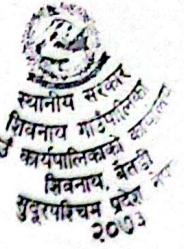 स्थानीय सरकार
शिवनाथ गाउँपालिका
कार्यपालिकाको कार्यालय
शिवनाथ, बैतडी
सुदूरपश्चिम प्रदेश
२०७३